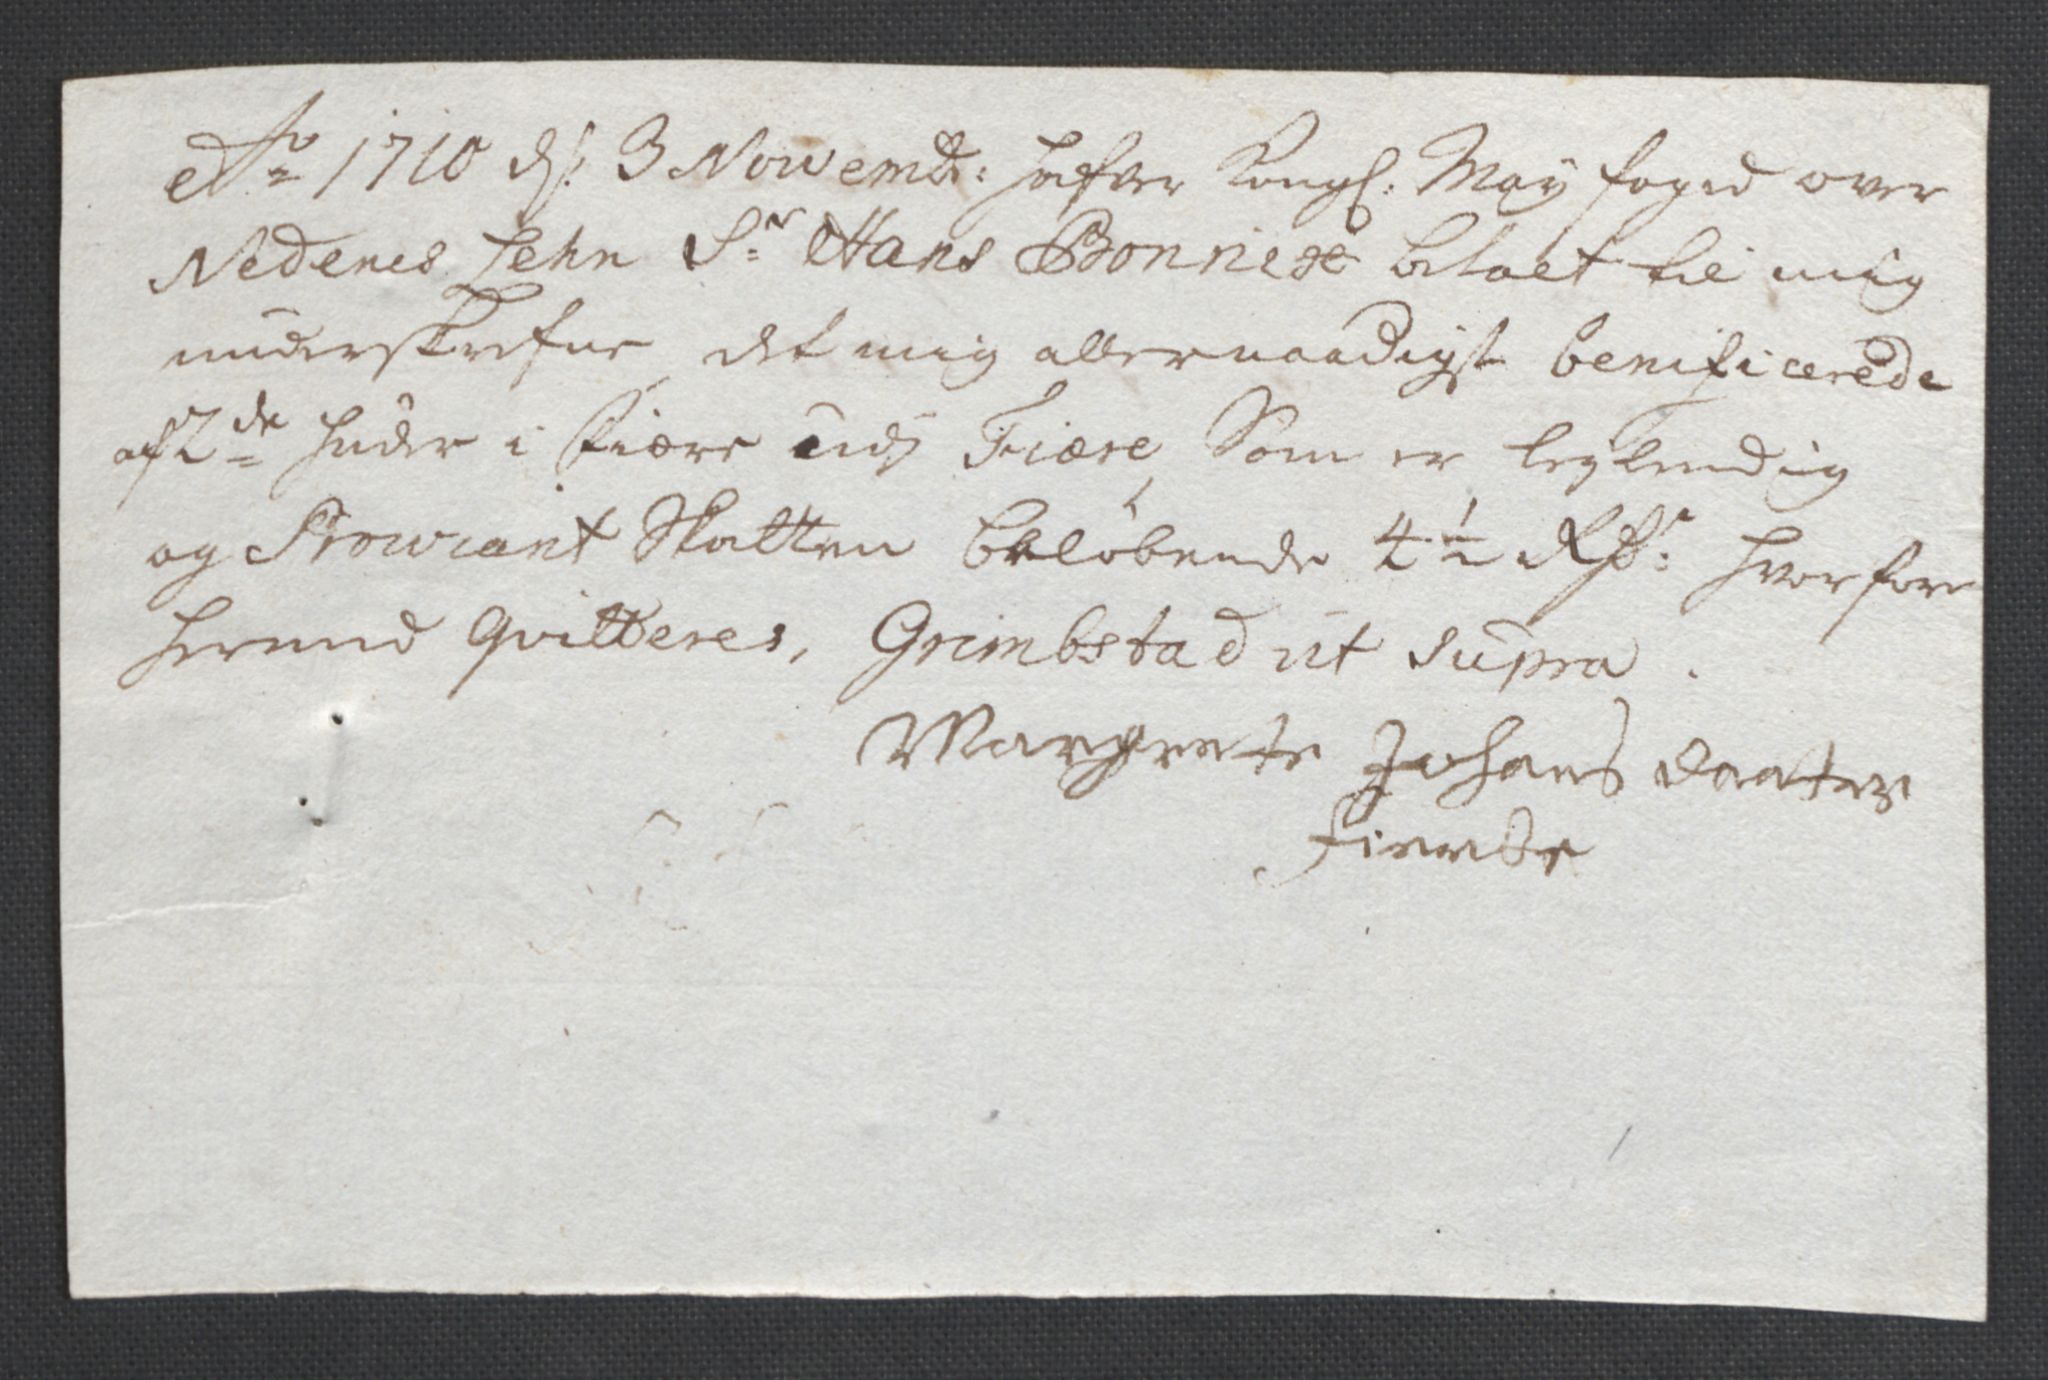 Ao 1710 d: 3 Nowembr: hafver Kongl: May foged over
Nedenes Lehn Sr Hans Bonniese betalt til mig
underskrefne det mig allernaadigst benificerede
af 2de huder i Fiære udj Fiære, Som er
og Prowiant Skatten belöbende 4 1/2 Rdr: hvorfore
hermed qvitteres, Grimbstad ut supra.
Margrete Johans daater